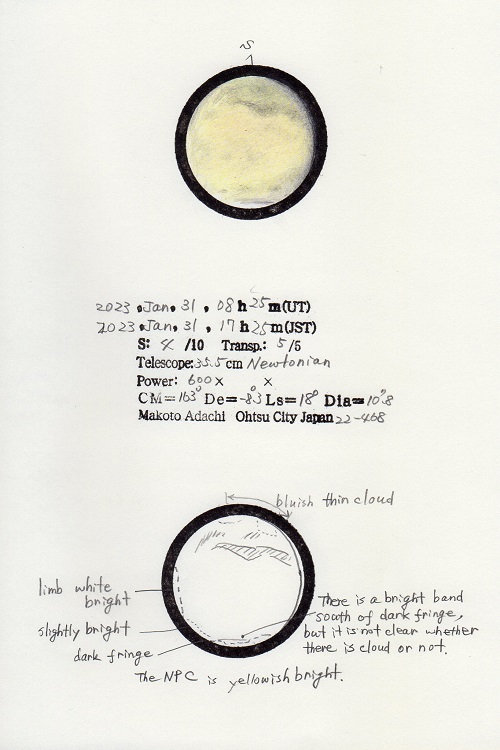 S
2023, Jan. 31, 08h25m(UT)
2023, Jan. 31, 17h25m(JST)
S: 4 /10 Transp.: 5/5
Telescope:35.5cm Newtonian
Power: 600× ×
CM=163° De=-8.3° Ls=18° Dia=10".8
Makoto Adachi Ohtsu City Japan 22-468
bluish thin cloud
limb white
bright
slightly bright
dark fringe
There is a bright band
south of dark fringe,
but it is not clear whether
there is cloud or not.
The NPC is yellowish bright.